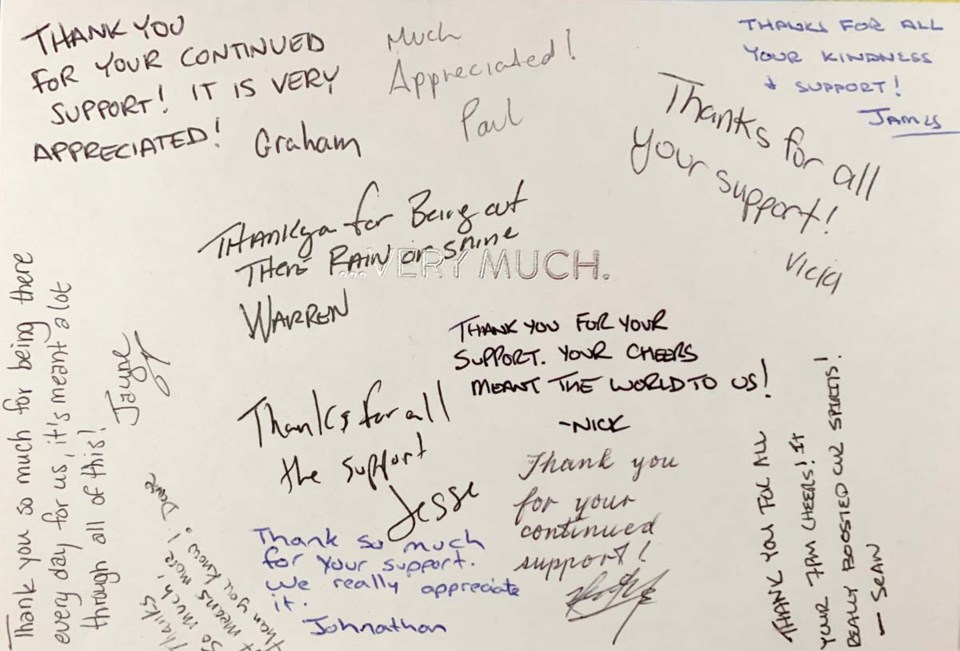 THANK YOU
FOR YOUR CONTINUED
SUPPORT! IT IS VERY
APPRECIATED!
Graham
Much
Appreciated!
Paul
THANKS FOR ALL
YOUR KINDNESS
& SUPPORT!
JAMES
Thanks for all
your support!
Vicia
THANKya for Being out
THERE RAIN or SHINE
WARREN
...VERY MUCH.
THANK YOU FOR YOUR
SUPPORT. YOUR CHEERS
MEANT THE WORLD TO US!
~NICK
Thank you so much for being there
every day for us, it's meant a lot
through all of this!
Jayne
Thanks for all
the support
Jesse
Thank you
for your
continued
support!
Thanks
so much!
It means more
than you know! Dave
Thank so much
for your support.
We really appreciate
it.
Johnathan
THANK YOU FOR ALL
YOUR 7AM CHEERS! IT
REALLY BOOSTED OUR SPIRITS!
— SEAN